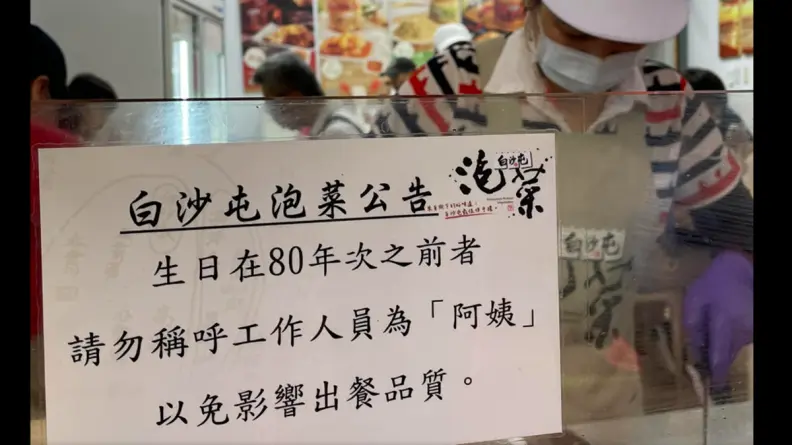 白沙屯泡菜公告
白沙屯
泡菜
生日在80年次之前者
請勿稱呼工作人員為「阿姨」
以免影響出餐品質。
白沙屯